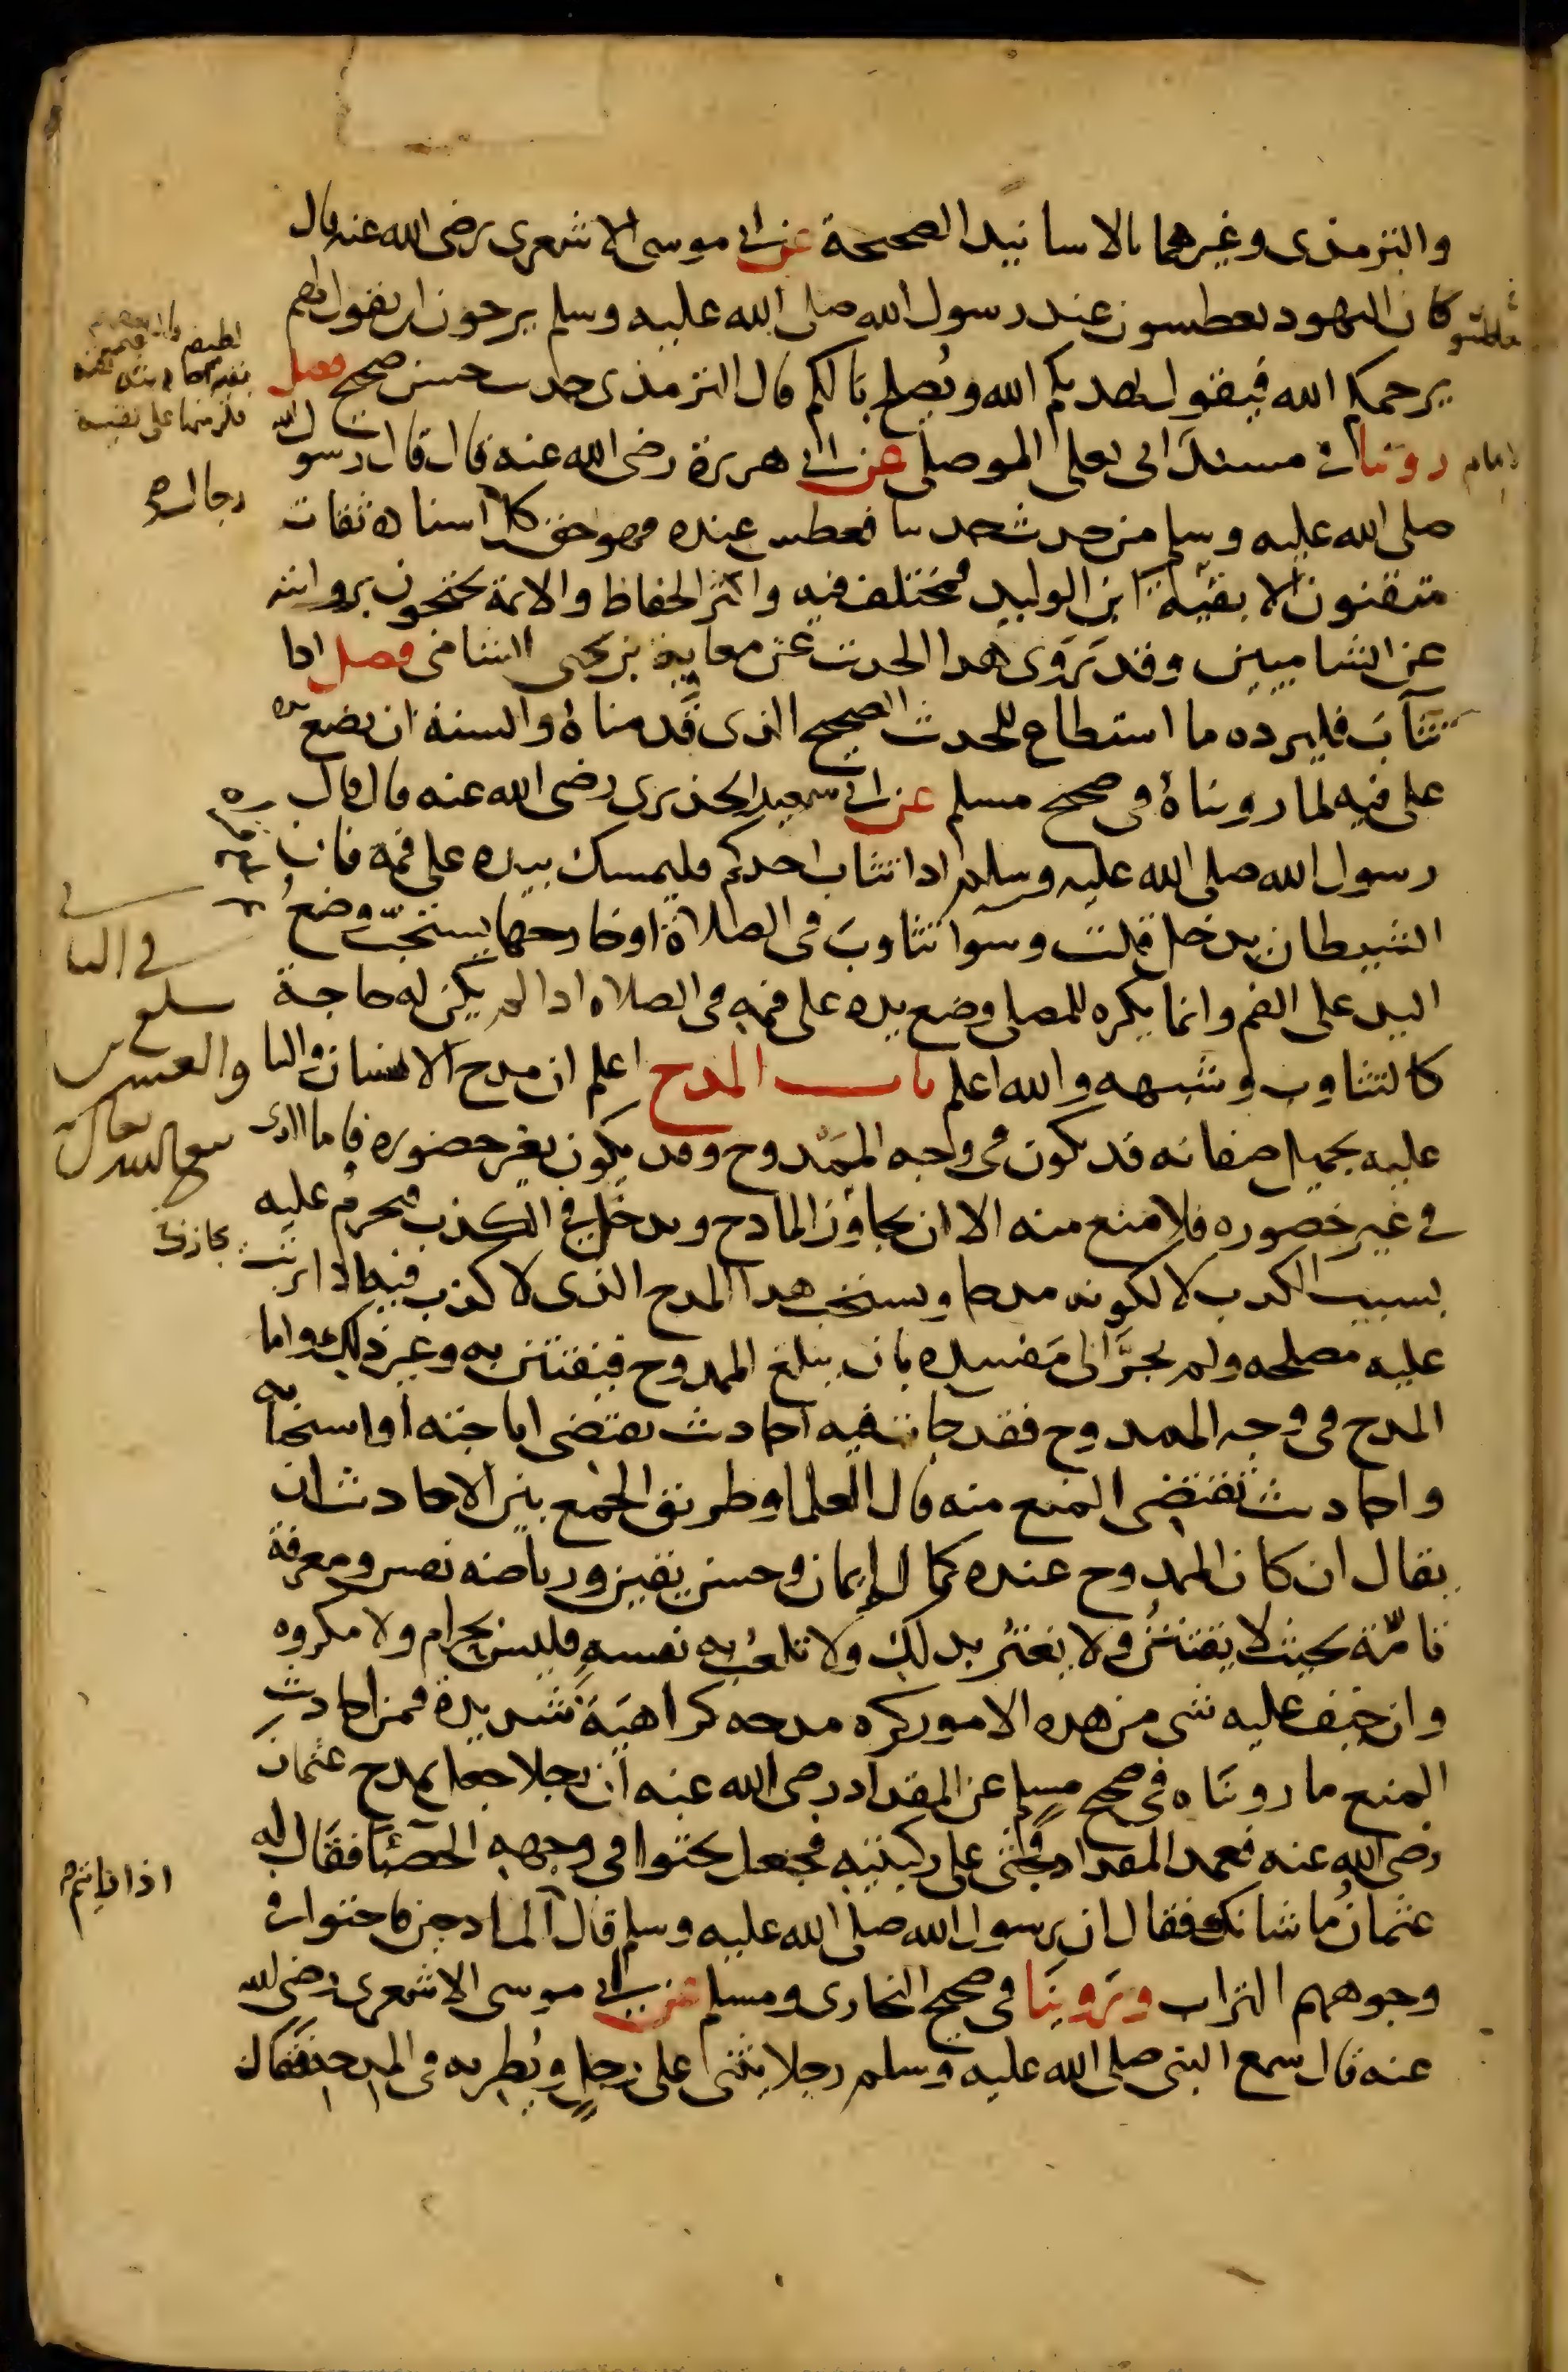 والترمذى وغيرهما بالاسانيد الصحيحة عن ابى موسى الاشعرى رضى الله عنه قال
كان اليهود يعطسون عند رسول الله صلى الله عليه وسلم يرجون ان يقول لهم
يرحمكم الله فيقول يهديكم الله ويُصلح بالكم قال الترمذى حديث حسن صحيح فصل
روينا فى مسند ابى يعلى الموصلى عن ابى هريرة رضى الله عنه قال قال رسول الله
صلى الله عليه وسلم من حدث حديثا فعطس عنده فهو حق كل اسناده ثقات
متقنون الا بقيّة ابن الوليد فمختلف فيه واكثر الحفاظ والائمة يحتجون بروايته
عن الشاميين وقد رَوَى هذا الحديث عن معاوية بن يحيى الشامى فصل اذا
تثآبَ فليرده ما استطاع للحديث الصحيح الذى قدمناهُ والسنة ان يضع يده
على فيه لما رويناهُ فى صحيح مسلم عن ابى سعيد الخدرى رضى الله عنه قال قال
رسول الله صلى الله عليه وسلم اذا تثاب احدكم فليمسك بيده على فمه فان
الشيطان يدخل قلت وسوآ تثاوبَ فى الصلاة او خارجها يستحبّ وضعُ
اليد على الفم وانما يكره للمصلى وضع يده على فمه فى الصلاة اذا لم يكن له حاجة
كالتثاوب وشبهه والله اعلم باب المدح اعلم ان مدح الانسان والثنا
عليه بجميل صفاته قد يكون فى وجه الممَدوح وقد يكون بغير حضوره فاما الذى
فى غير حضوره فلا منع منه الا ان يجاوز المادح ويدخُل فى الكذب فيحرمُ عليه
بسبب الكذب لا لكونه مدحا ويستحب هذا المدح الذى لا كذب فيه اذا ترتب
عليه مصلحه ولم يجرَّ الى مَفسده بان يبلغ الممدوح فيفتتن به وغير ذلك واما
المدح فى وجه الممدوح فقد جات فيه احاديث يقتضى اباحته او استحبابه
واحاديث تقتضى المنع منه قال العلما وطريق الجمع بين الاحاديث ان
يقال ان كان الممدوح عنده كمال إيمان وحسن يقين ورياضه نفس ومعرفة
تامّة بحيث لا يفتتنُ ولا يغترُ بذلك ولا تلعبُ به نفسه فليس بحرام ولا مكروه
وان خيف عليه شى من هذه الامور كره مدحه كراهيَة شديدة فمن احاديث
المنع ما رويناه فى صحيح مسلم عن المقداد رضى الله عنه ان رجلا جعل يمدح عثمان
رضى الله عنه فعمد المقداد فجثى على ركبتيه فجعل يحثوا فى وجهه الحصبآ فقال له
عثمانُ ما شانك فقال ان رسول الله صلى الله عليه وسلم قال المادحين فاحثوا فى
وجوههم التراب ورَوينَا فى صحيح البخارى ومسلم عن ابى موسى الاشعرى رضى الله
عنه قال سمع النبى صلى الله عليه وسلم رجلا يثنى على رجلٍ ويُطريه فى المدحة فقال
رجاله
فى البا
مجازفة
اذا رايتم